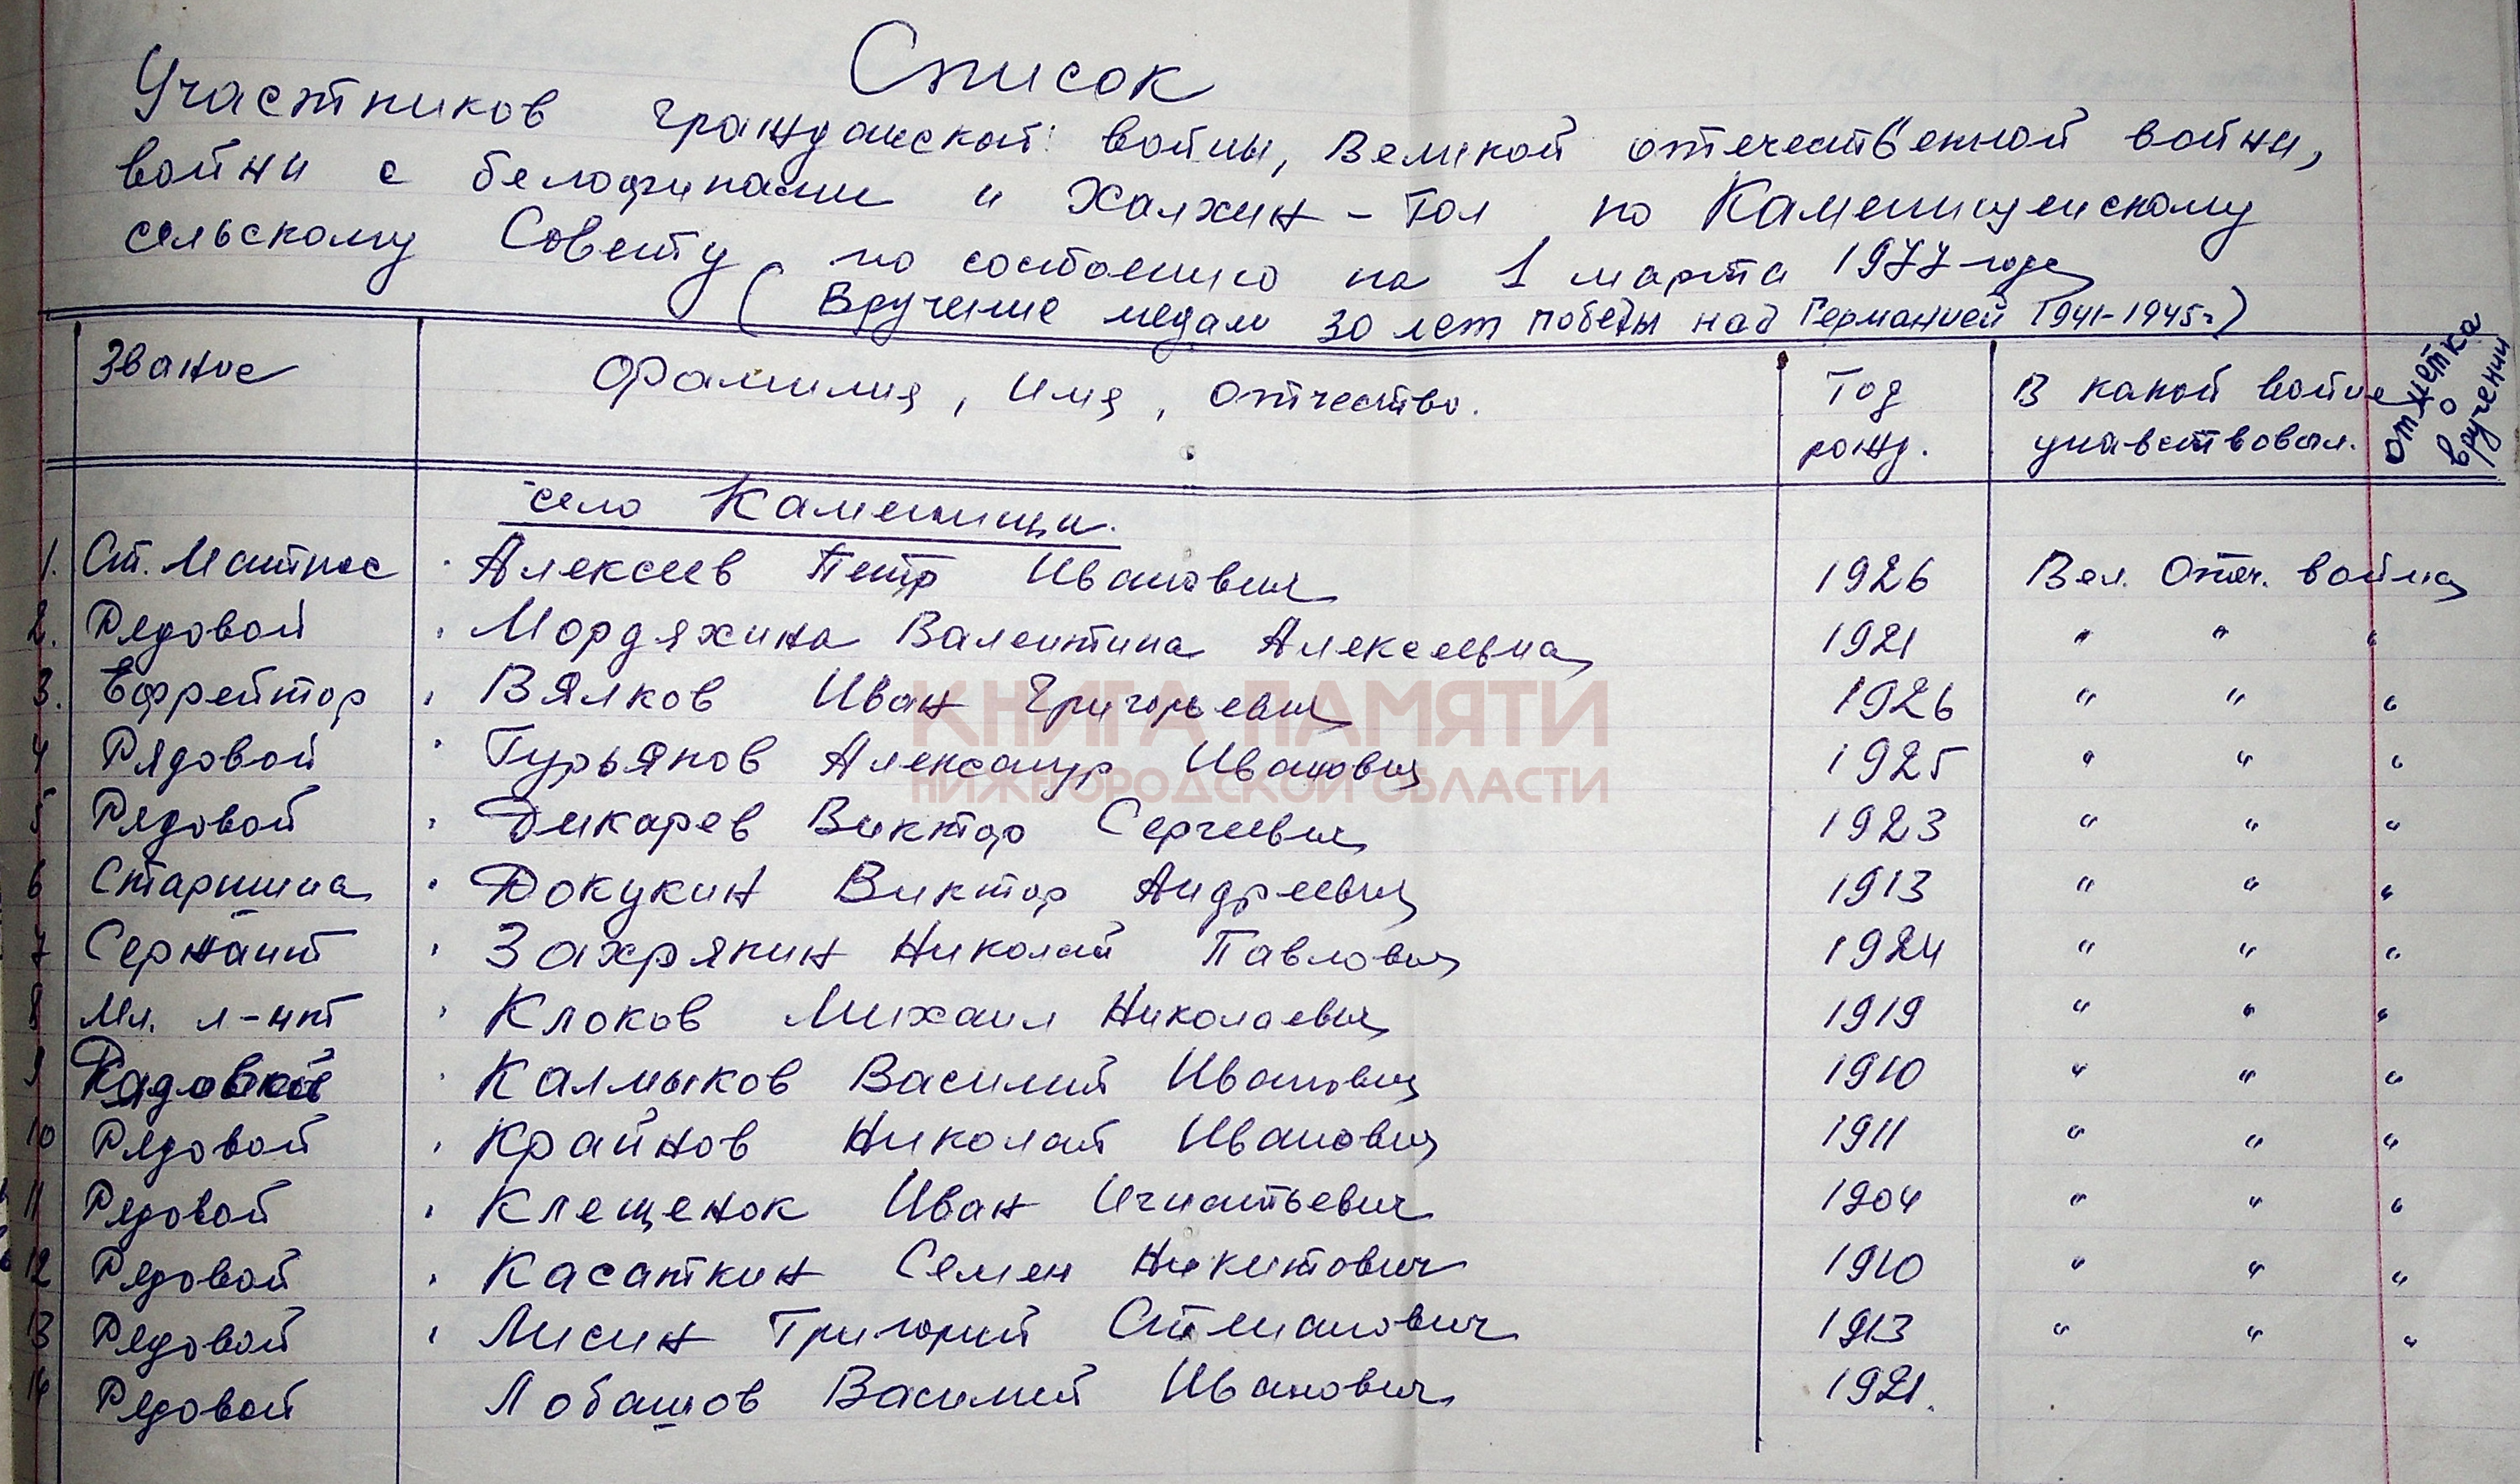 Список
Участников гражданской войны, Великой отечественной войны,
войны с белофинами и Халхин-Гол по Каменищенскому
сельскому Совету по состоянию на 1 марта 1977 года
(Вручение медали 30 лет победы над Германией 1941-1945г)
Звание Фамилия, имя, отчество. Год рожд. В какой войне учавствовал. отметка о вручении
село Каменищи.
1. Ст. Матрос Алексеев Петр Иванович 1926 Вел. Отеч. война
2. Рядовой Мордяхина Валентина Алексеевна 1921 " " "
3. Ефрейтор Вялков Иван Григорьевич 1926 " " "
4 Рядовой Гурьянов Александр Иванович 1925 " " "
5 Рядовой Дикарев Виктор Сергеевич 1923 " " "
6 Старшина Докукин Виктор Андреевич 1913 " " "
7 Сержант Захряпин Николай Павлович 1924 " " "
8 Мл. л-нт Клоков Михаил Николаевич 1919 " " "
9 Рядовой Калмыков Василий Иванович 1910 " " "
10 Рядовой Крайнов Николай Иванович 1911 " " "
11 Рядовой Клещенок Иван Игнатьевич 1904 " " "
12 Рядовой Касаткин Семен Никитович 1910 " " "
13 Рядовой Лисин Григорий Степанович 1913 " " "
14 Рядовой Лобашов Василий Иванович 1921.
КНИГА ПАМЯТИ
НИЖЕГОРОДСКОЙ ОБЛАСТИ